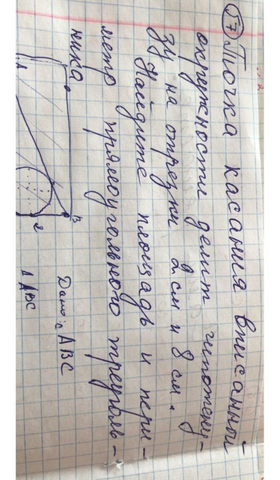 17 Точка касания вписанной
окружности делит гипотену-
зу на отрезки 2 см и 8 см.
Найдите площадь и пери-
метр прямоугольного треуголь-
ника
Дано: ABC